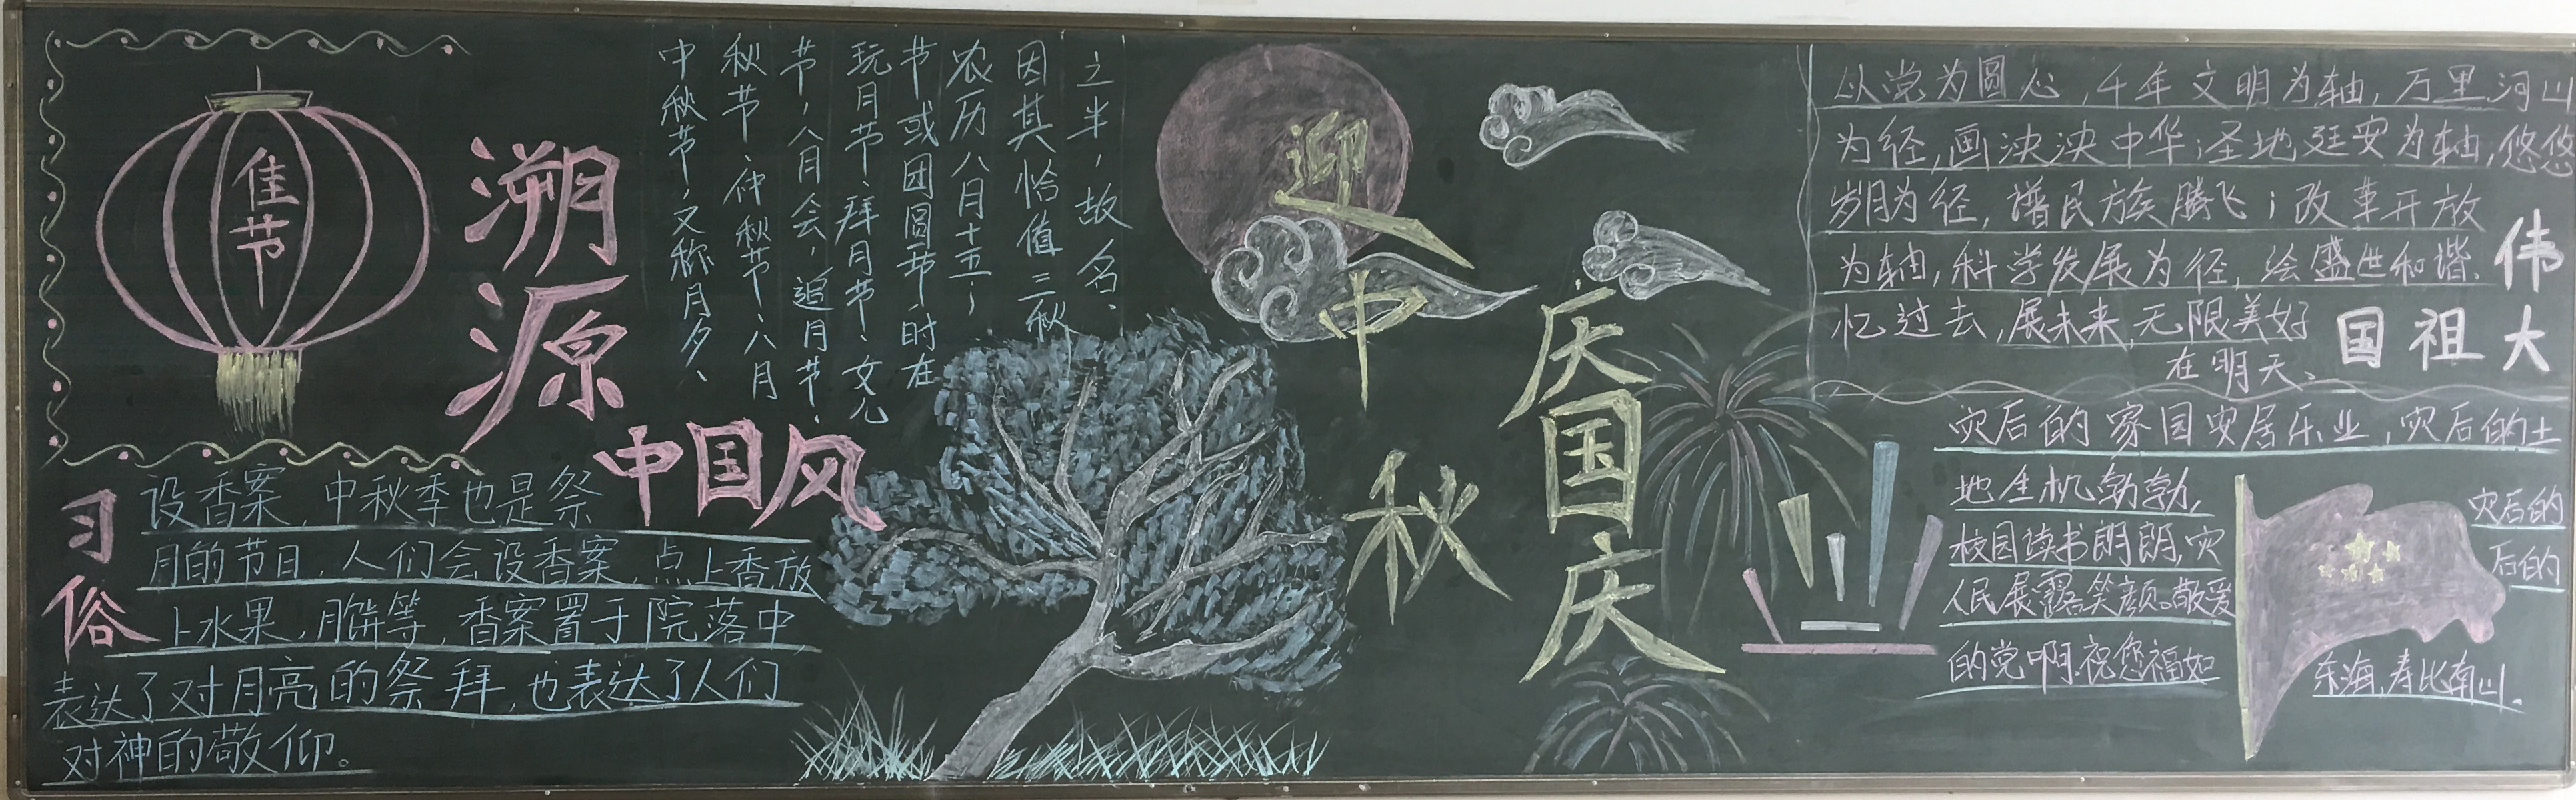 佳节
溯源
中秋节,又称月夕、
秋节、仲秋节、八月
节,八月会,追月节、
玩月节、拜月节、女儿
节或团圆节,时在
农历八月十五;
因其恰值三秋
之半,故名、
中国风
习俗
设香案,中秋季也是祭
月的节日,人们会设香案,点上香放
上水果,月饼等,香案置于院落中,
表达了对月亮的祭拜,也表达了人们
对神的敬仰。
迎中秋
庆国庆
以党为圆心,千年文明为轴,万里河山
为径,画泱泱中华;圣地延安为轴,悠悠
岁月为径,谱民族腾飞;改革开放
为轴,科学发展为径,绘盛世和谐.
忆过去,展未来,无限美好
在明天、
伟大
国祖
灾后的家园安居乐业,灾后的土
地生机勃勃,灾后的
校园读书朗朗,灾后的
人民展露笑颜。敬爱
的党啊.祝您福如
东海,寿比南山.